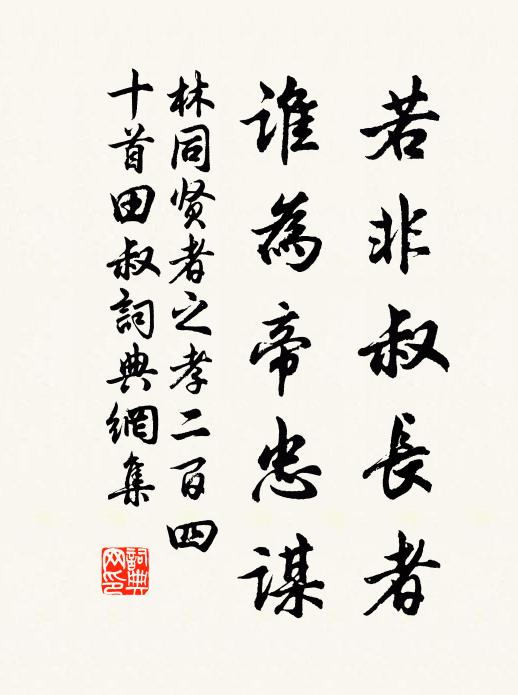 若非叔長者
誰為帝忠谋
林同贤者之孝二百四
十首田叔詞典網集
詞典
网印